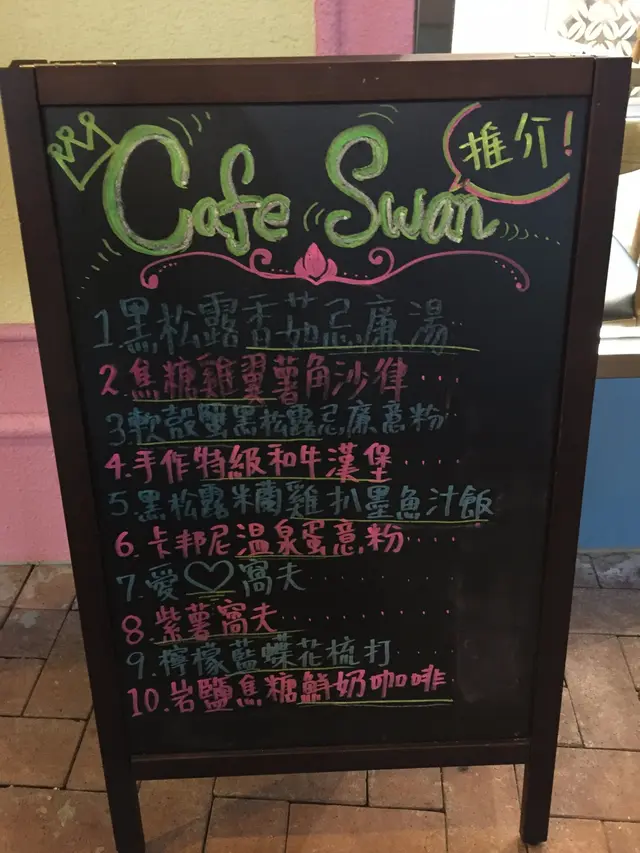 Cafe Swan
推介!
1黑松露香茹忌廉湯
2.焦糖雞翼薯角沙律....
3.軟殼蟹黑松露忌廉意粉
4.手作特級和牛漢堡.....
5.黑松露米蘭雞扒墨魚汁飯
6.卡邦尼溫泉蛋意粉....
7.愛♡窩夫..........
8.紫薯窩夫..........
9.檸檬藍蝶花梳打...
10.岩鹽焦糖鮮奶咖啡